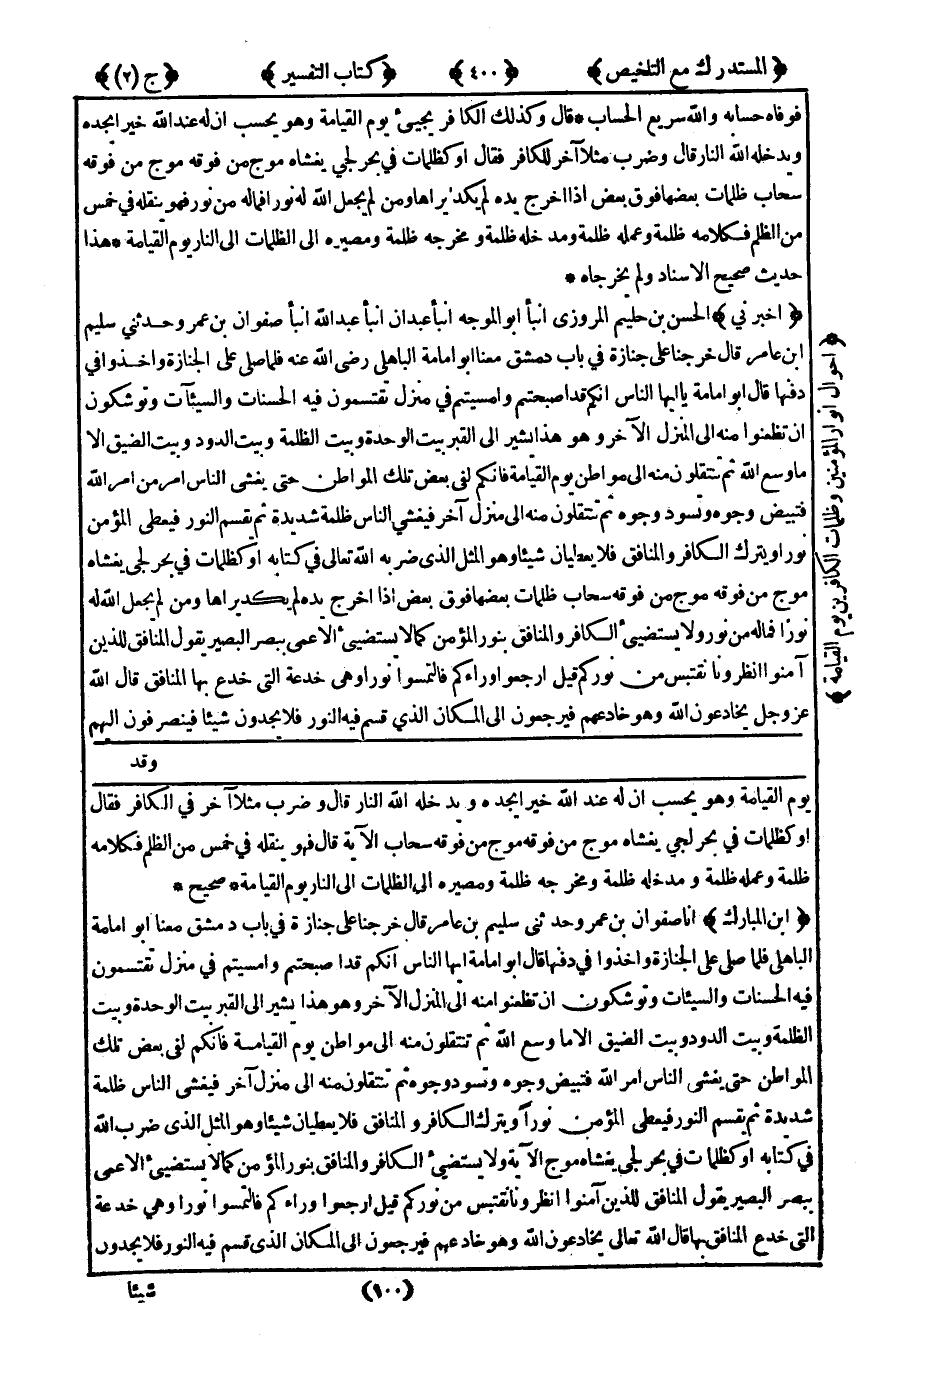 ﴿ المستدرك مع التلخيص ﴾ ﴿٤٠٠﴾ ﴿ كتاب التفسير ﴾ ﴿ ج (٢) ﴾
فوفاه حسابه والله سريع الحساب * قال وكذلك الكافر يجيئ يوم القيامة وهو يحسب ان له عند الله خيرا يجده
ويدخله الله النار قال وضرب مثلا آخر للكافر فقال او كظلمات في بحر لجي يغشاه موج من فوقه موج من فوقه
سحاب ظلمات بعضها فوق بعض اذا اخرج يده لم يكد يراها ومن لم يجعل الله له نورا فماله من نور فهو ينقله في خمس
من الظلم فكلامه ظلمة وعمله ظلمة ومدخله ظلمة و مخرجه ظلمة ومصيره الى الظلمات الى النار يوم القيامة * هذا
حديث صحيح الاسناد ولم يخرجاه *
﴿ اخبرني ﴾ الحسن بن حليم المروزى انبأ ابو الموجه انبأ عبدان انبأ عبدالله انبأ صفوان بن عمر وحدثني سليم
ابن عامر قال خرجنا على جنازة في باب دمشق معنا ابو امامة الباهلي رضى الله عنه فلما صلى على الجنازة واخذوا في
دفنها قال ابو امامة يا ايها الناس انكم قد اصبحتم وامسيتم في منزل تقتسمون فيه الحسنات والسيئآت وتوشكون
ان تظعنوا منه الى المنزل الآخر و هو هذا يشير الى القبر بيت الوحدة وبيت الظلمة وبيت الدود وبيت الضيق الا
ما وسع الله ثم تنتقلون منه الى مواطن يوم القيامة فانكم لفى بعض تلك المواطن حتى يغشى الناس امر من امر الله
فتبيض وجوه وتسود وجوه ثم تنتقلون منه الى منزل آخر فيغشي الناس ظلمة شديدة ثم يقسم النور فيعطى المؤمن
نورا ويترك الكافر والمنافق فلا يعطيان شيئا وهو المثل الذى ضربه الله تعالى في كتابه او كظلمات في بحر لجى يغشاه
موج من فوقه موج من فوقه سحاب ظلمات بعضها فوق بعض اذا اخرج يده لم يكد يراها ومن لم يجعل الله له
نورًا فماله من نور ولا يستضيئ الكافر والمنافق بنور المؤمن كما لا يستضيئ الاعمى ببصر البصير يقول المنافق للذين
آمنوا انظرونا نقتبس من نوركم قيل ارجعوا وراءكم فالتمسوا نورا وهى خدعة التى خدع بها المنافق قال الله
عز وجل يخادعون الله وهو خادعهم فيرجعون الى المكان الذي قسم فيه النور فلا يجدون شيئا فينصرفون اليهم
وقد
﴿ احوال انوار المؤمنين وظلمات الكافرين يوم القيامة ﴾
يوم القيامة وهو يحسب ان له عند الله خيرا يجده و يدخله الله النار قال و ضرب مثلا آخر في الكافر فقال
او كظلمات في بحر لجي يغشاه موج من فوقه موج من فوقه سحاب الآية قال فهو ينقله في خمس من الظلم فكلامه
ظلمة وعمله ظلمة و مدخله ظلمة ومخرجه ظلمة ومصيره الى الظلمات الى النار يوم القيامة * صحيح *
﴿ ابن المبارك ﴾ انا صفوان بن عمر وحدثنى سليم بن عامر قال خرجنا على جنازة في باب دمشق معنا ابو امامة
الباهلى فلما صلى على الجنازة واخذوا في دفنها قال ابو امامة ايها الناس انكم قد اصبحتم وامسيتم في منزل تقتسمون
فيه الحسنات والسيئات وتوشكون ان تظعنوا منه الى المنزل الآخر وهو هذا يشير الى القبر بيت الوحدة وبيت
الظلمة وبيت الدود وبيت الضيق الاما وسع الله ثم تنتقلون منه الى مواطن يوم القيامة فانكم لفى بعض تلك
المواطن حتى يغشى الناس امر الله فتبيض وجوه وتسود وجوه ثم تنتقلون منه الى منزل آخر فيغشى الناس ظلمة
شديدة ثم يقسم النور فيعطى المؤمن نورآ ويترك الكافر و المنافق فلا يعطيان شيئا وهو المثل الذى ضرب الله
في كتابه او كظلمات في بحر لجى يغشاه موج الآية ولا يستضيئ الكافر والمنافق بنور المؤمن كما لا يستضيئ الاعمى
ببصر البصير يقول المنافق للذين آمنوا انظرونا نقتبس من نوركم قيل ارجعوا وراءكم فالتمسوا نورا وهي خدعة
التى خدع المنافق بها قال الله تعالى يخادعون الله وهو خادعهم فيرجعون الى المكان الذى قسم فيه النور فلا يجدون
(١٠٠) شيئا